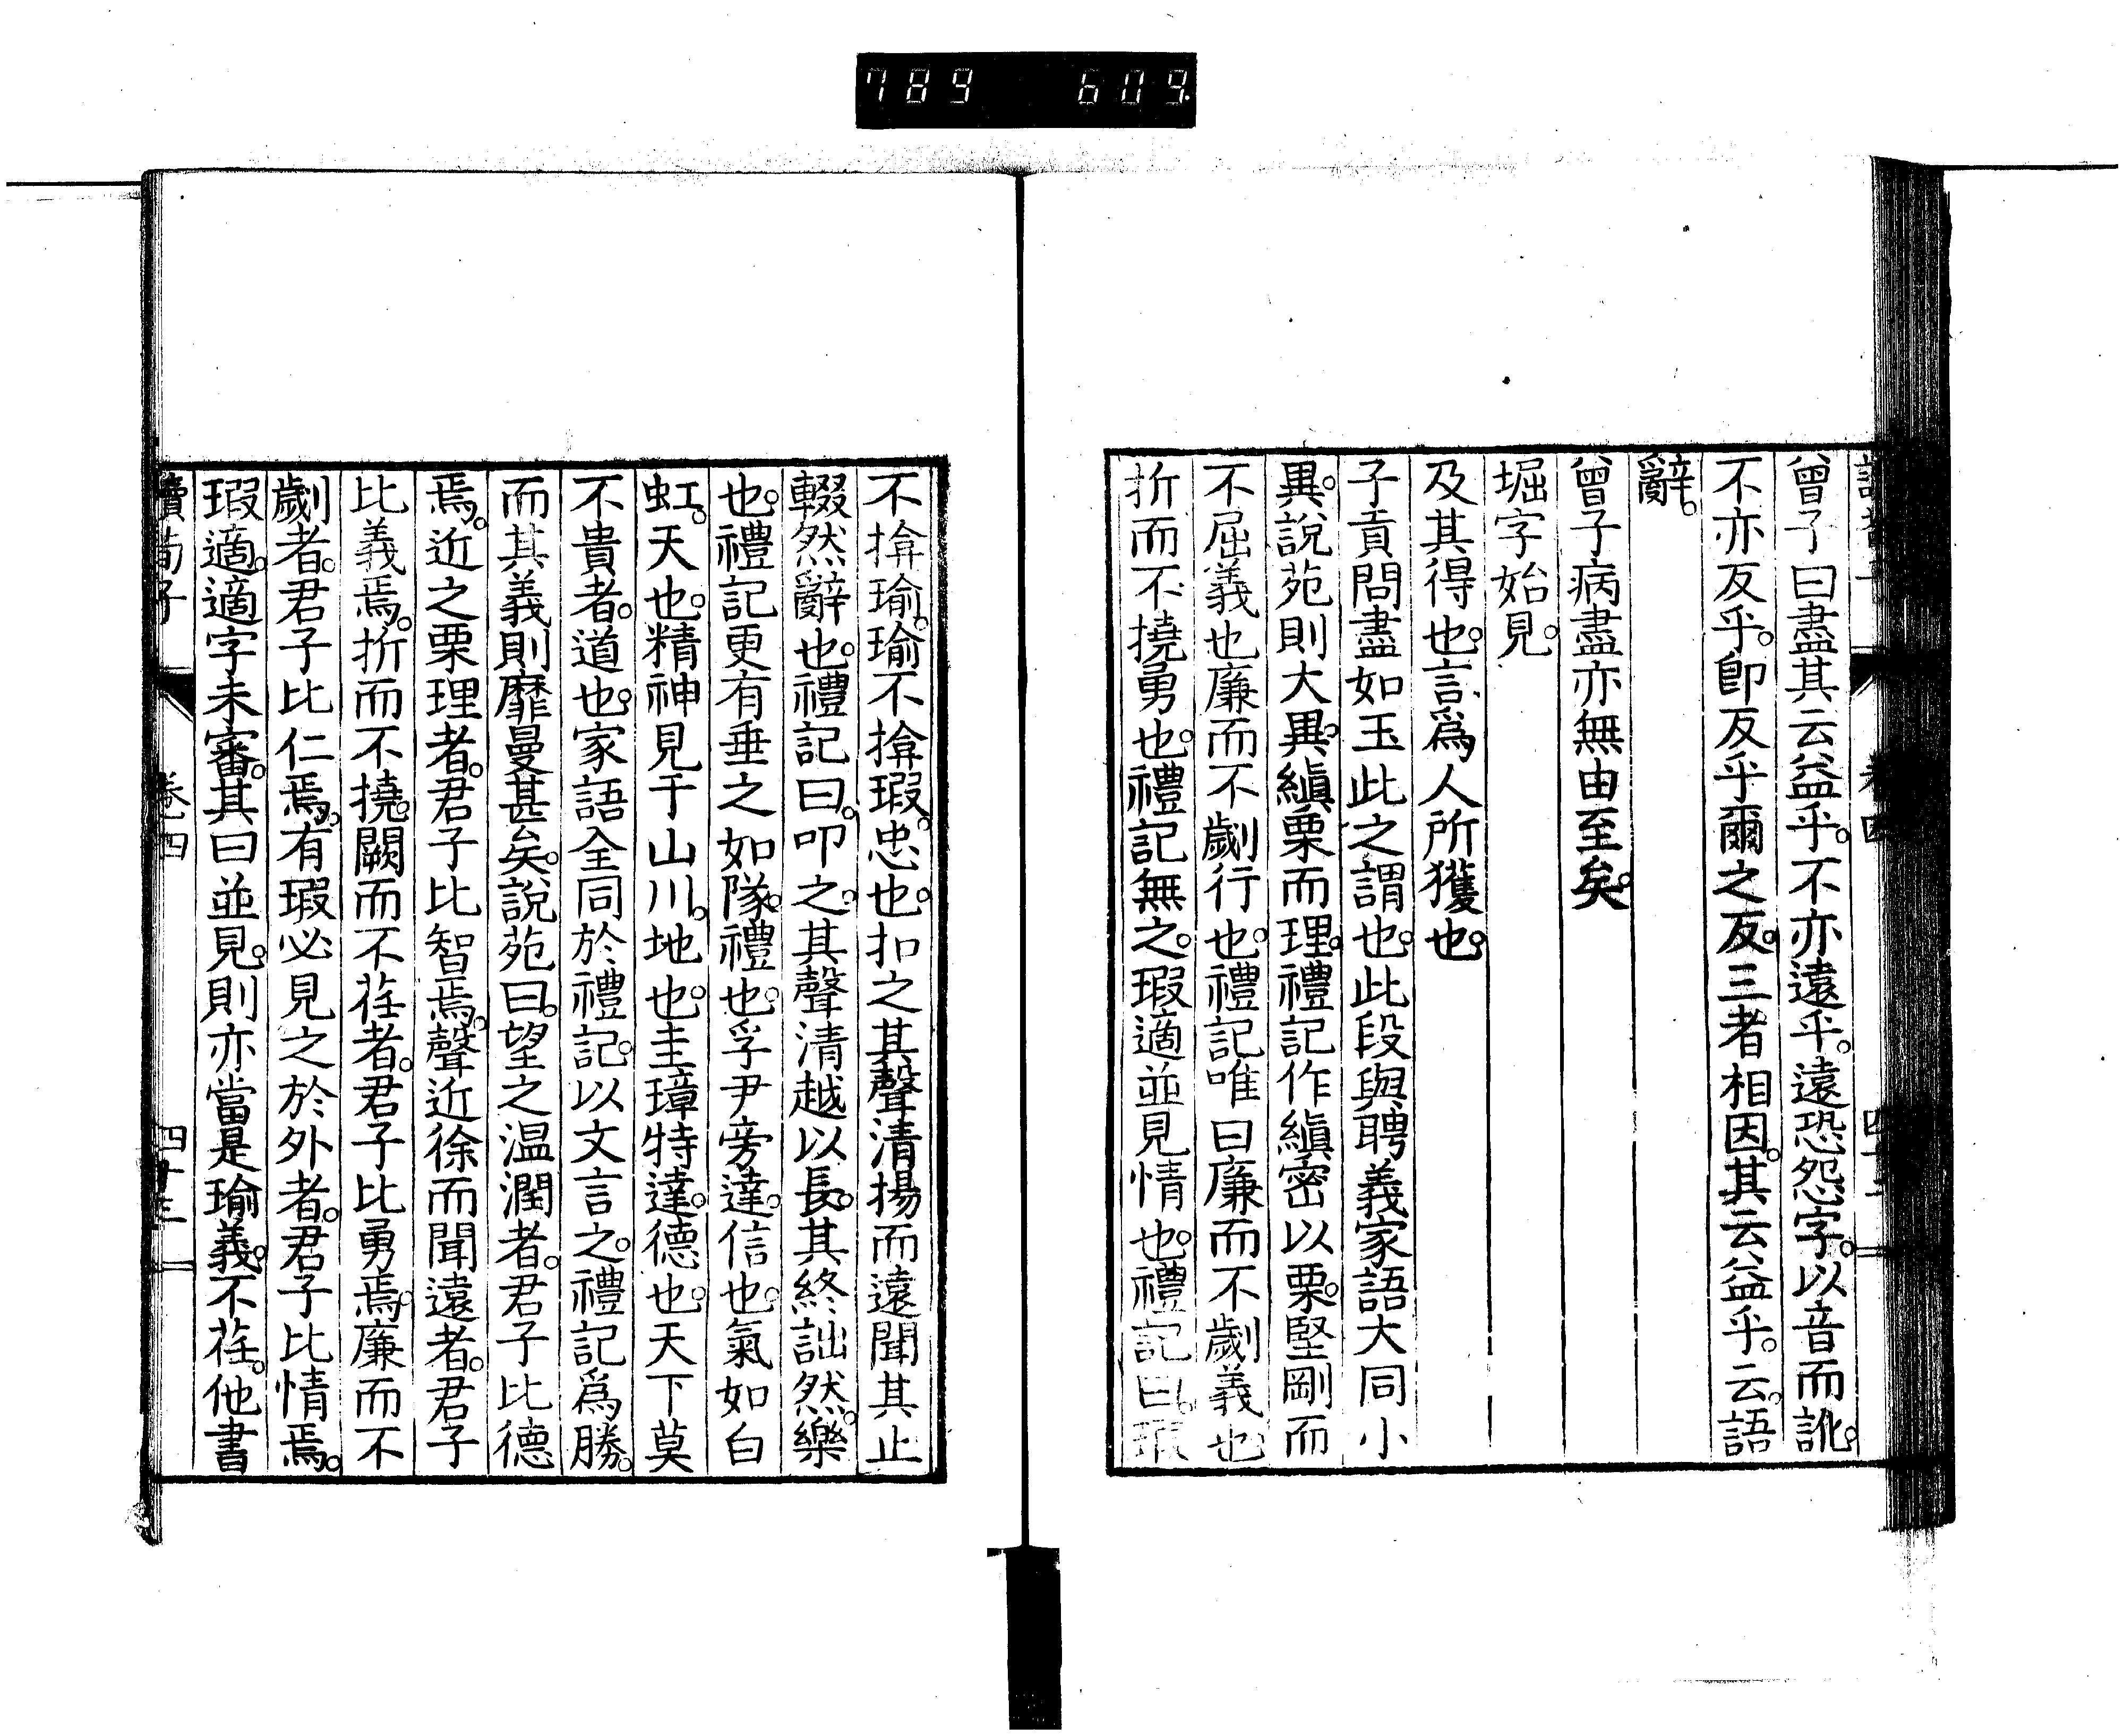 789 609
曾子曰盡其云益乎。不亦遠乎。遠恐怨字。以音而訛。
不亦反乎。卽反乎爾之反。三者相因。其云益乎。云。語
辭。
曾子病盡亦無由至矣。
堀字始見。
及其得也。言爲人所獲也。
子貢問盡如玉此之謂也。此段與聘義家語大同小
異。說苑則大異。縝栗而理。禮記作縝密以栗。堅剛而
不屈義也廉而不劌行也。禮記唯曰廉而不劌義也
折而不撓勇也。禮記無之。瑕適並見情也。禮記曰。瑕
不揜瑜。瑜不揜瑕。忠也。扣之其聲清揚而遠聞其止
輟然辭也。禮記曰。叩之。其聲清越以長。其終詘然。樂
也。禮記更有垂之如隊。禮也。孚尹旁達。信也。氣如白
虹。天也。精神見于山川。地也。圭璋特達。德也。天下莫
不貴者。道也。家語全同於禮記。以文言之。禮記爲勝。
而其義則靡曼甚矣。說苑曰。望之溫潤者。君子比德
焉。近之栗理者。君子比智焉。聲近徐而聞遠者。君子
比義焉。折而不撓。闕而不荏者。君子比勇焉。廉而不
劌者。君子比仁焉。有瑕必見之於外者。君子比情焉。
瑕適。適字未審。其曰並見。則亦當是瑜義。不荏。他書
讀荀子 卷四 四十三